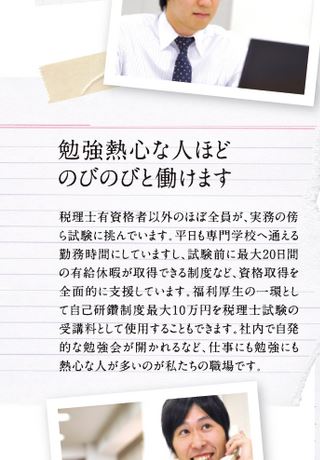 勉強熱心な人ほど
のびのびと働けます
税理士有資格者以外のほぼ全員が、実務の傍
ら試験に挑んでいます。平日も専門学校へ通える
勤務時間にしていますし、試験前に最大20日間
の有給休暇が取得できる制度など、資格取得を
全面的に支援しています。福利厚生の一環とし
て自己研鑽制度最大10万円を税理士試験の
受講料として使用することもできます。社内で自発
的な勉強会が開かれるなど、仕事にも勉強にも
熱心な人が多いのが私たちの職場です。